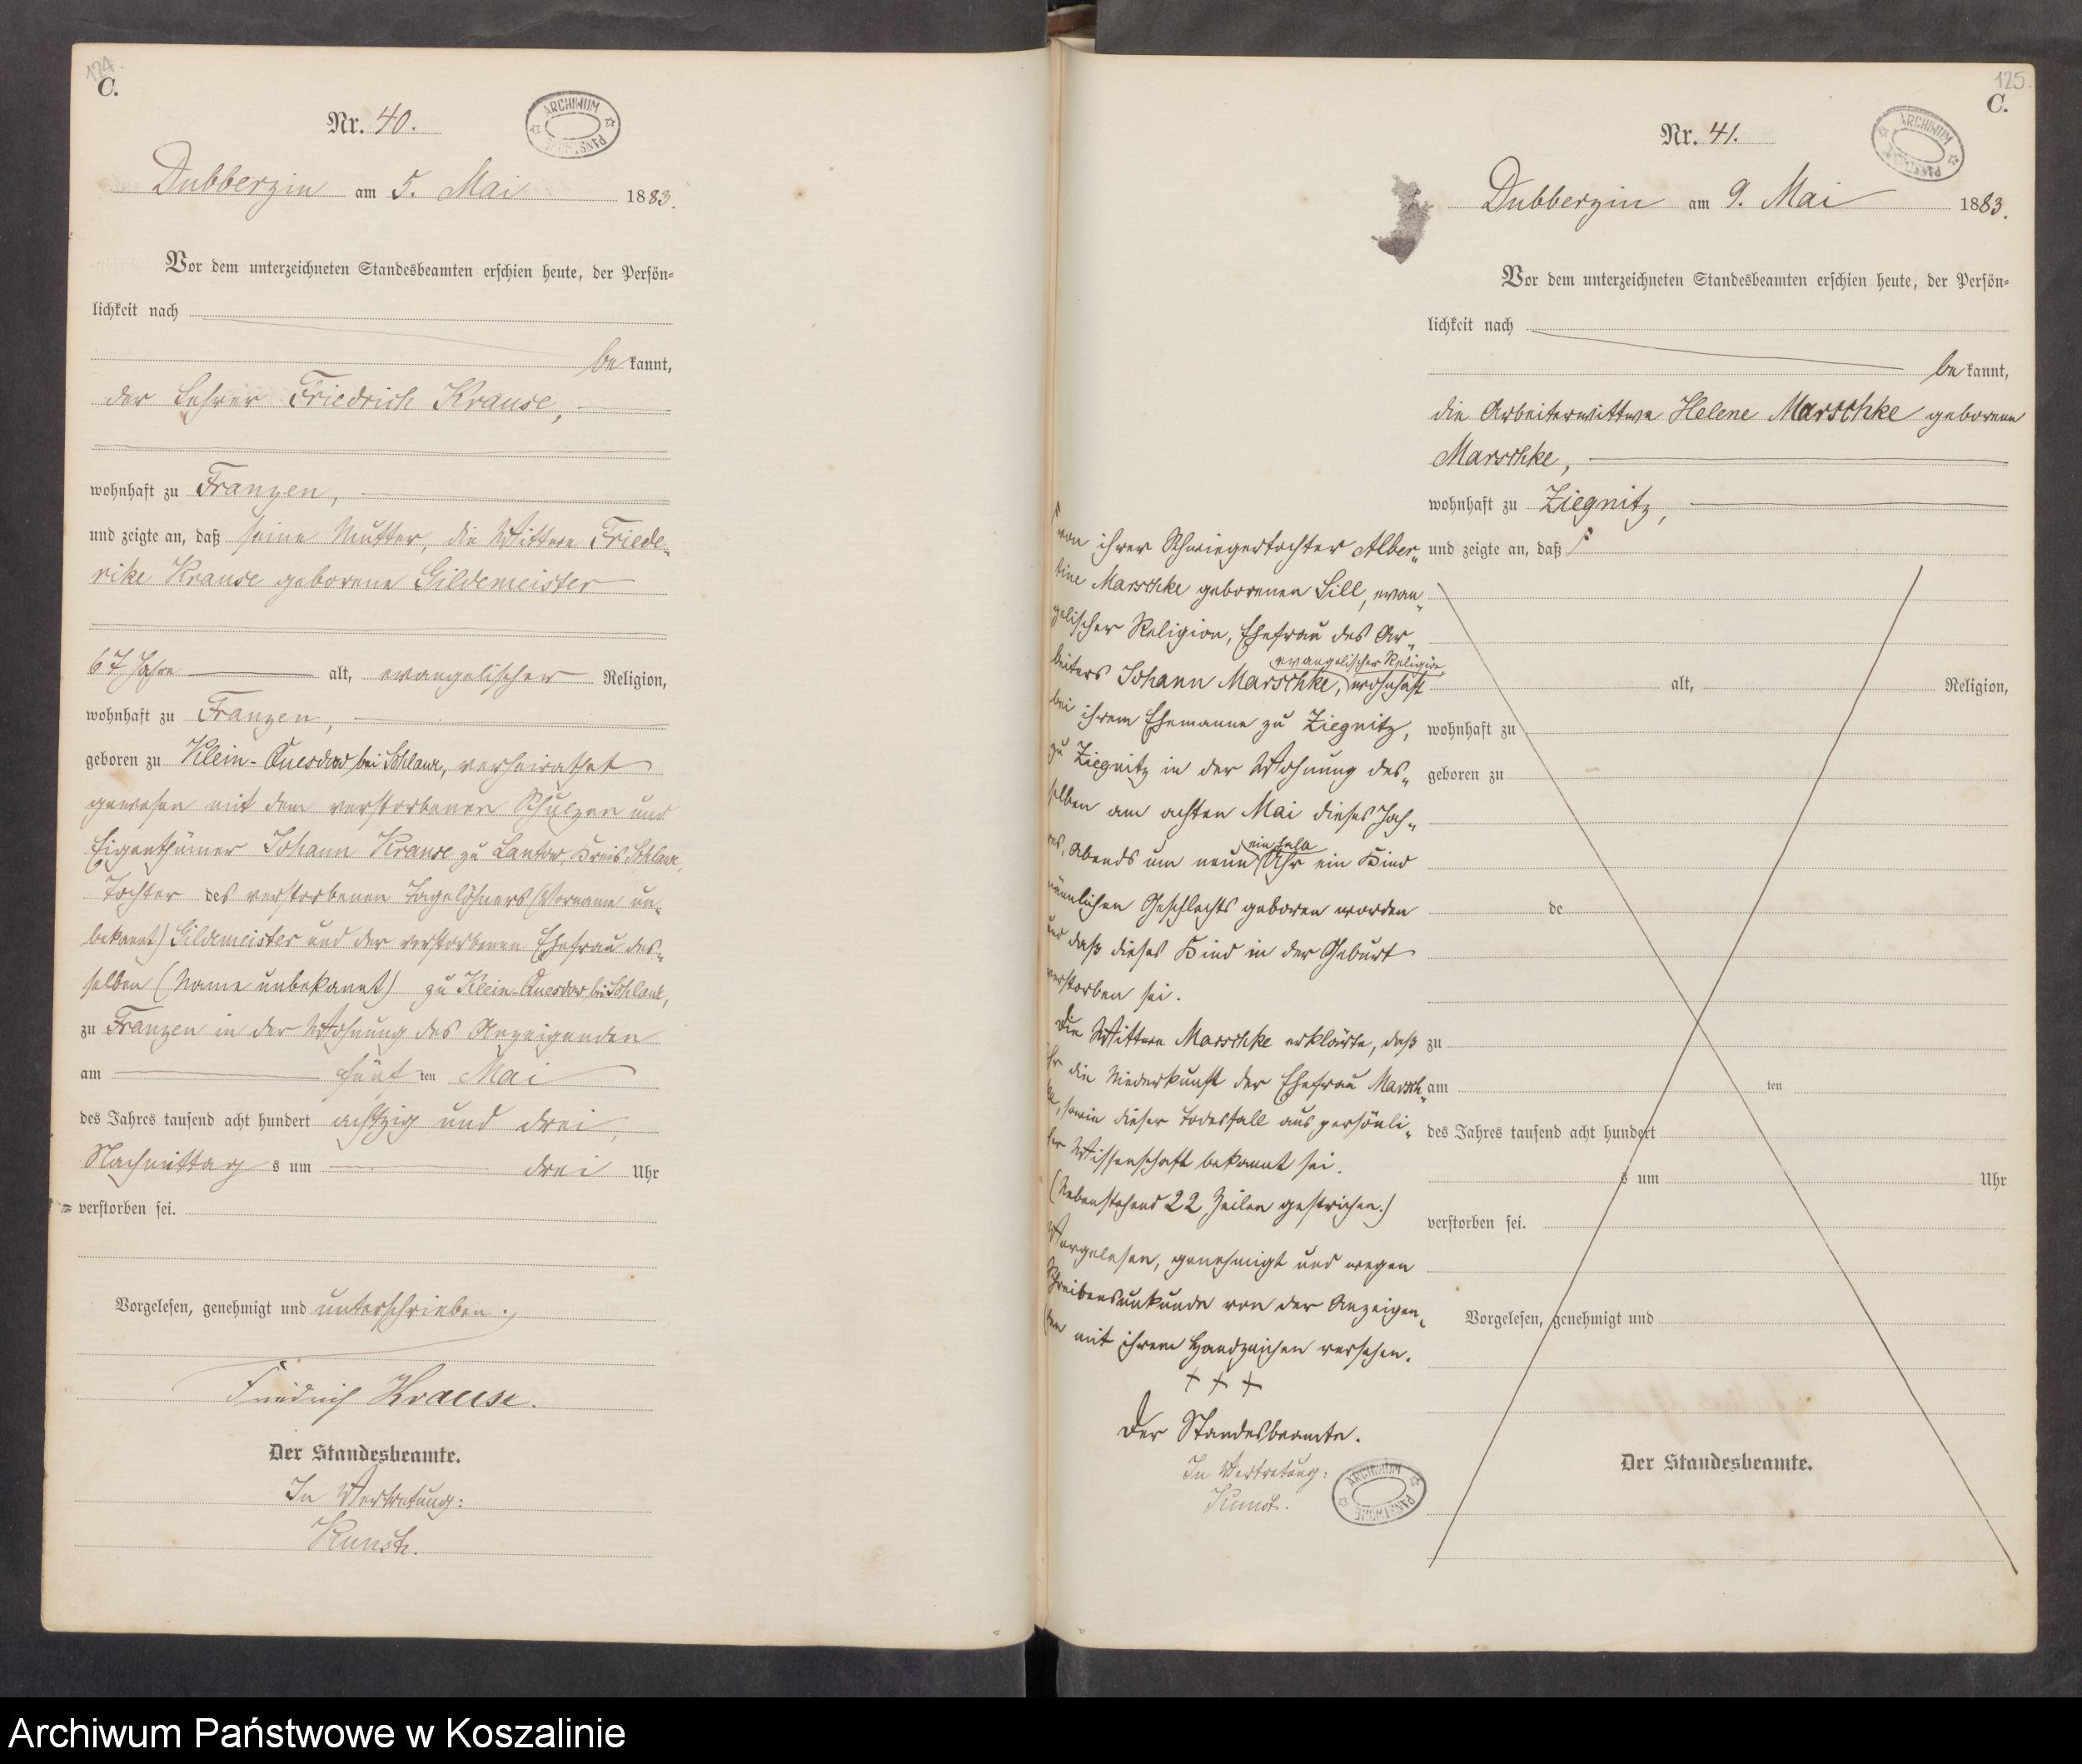 124.
C.
Nr. 40.
ARCHIWUM PAŃSTWOWE
Dubberzin am 5. Mai 1883.
Vor dem unterzeichneten Standesbeamten erschien heute, der Persön=
lichkeit nach
be kannt,
der Lehrer Friedrich Krause,
wohnhaft zu Franzen,
und zeigte an, daß seine Mutter, die Wittwe Friede„
rike Krause geborene Gildemeister
67 Jahre alt, evangelischer Religion,
wohnhaft zu Franzen,
geboren zu Klein-Quesdow bei Schlawe, verheirathet
gewesen mit dem verstorbenen Schulzen und
Eigenthümer Johann Krause zu Lantow, Kreis Schlawe,
Tochter des verstorbenen Tagelöhners (Vorname un„
bekannt) Gildemeister und der verstorbenen Ehefrau des„
selben (Name unbekannt) zu Klein-Quesdow bei Schlawe,
zu Franzen in der Wohnung des Anzeigenden
am fünf ten Mai
des Jahres tausend acht hundert achtzig und drei,
Nachmittag s um drei Uhr
verstorben sei.
Vorgelesen, genehmigt und unterschrieben.
Friedrich Krause.
Der Standesbeamte.
In Vertretung:
Kunst.
125.
C.
Nr. 41.
ARCHIWUM PAŃSTWOWE
Dubberzin am 9. Mai 1883.
Vor dem unterzeichneten Standesbeamten erschien heute, der Persön=
lichkeit nach
be kannt,
die Arbeiterwittwe Helene Marschke geborene
Marschke,
wohnhaft zu Ziegnitz,
und zeigte an, daß
von ihrer Schwiegertochter Alber„
tine Marschke geborenen Sill, evan„
gelischer Religion, Ehefrau des Ar„
evangelischer Religion
beiters Johann Marschke, wohnhaft
bei ihrem Ehemanne zu Ziegnitz,
zu Ziegnitz in der Wohnung des„
selben am achten Mai dieses Jah„
einhalb
res, Abends um neun Uhr ein Kind
männlichen Geschlechts geboren worden
und daß dieses Kind in der Geburt
verstorben sei.
Die Wittwe Marschke erklärte, daß
ihr die Niederkunft der Ehefrau Marsch„
ke, sowie dieser Todesfall aus persönli„
cher Wissenschaft bekannt sei.
(Nebenstehend 22 Zeilen gestrichen.)
Vorgelesen, genehmigt und wegen
Schreibensunkunde von der Anzeigen„
den mit ihrem Handzeichen versehen.
+ + +
Der Standesbeamte.
In Vertretung:
Kunst.
ARCHIWUM PAŃSTWOWE
alt, Religion,
wohnhaft zu
geboren zu
de
zu
am ten
des Jahres tausend acht hundert
s um Uhr
verstorben sei.
Vorgelesen, genehmigt und
Der Standesbeamte.
Archiwum Państwowe w Koszalinie